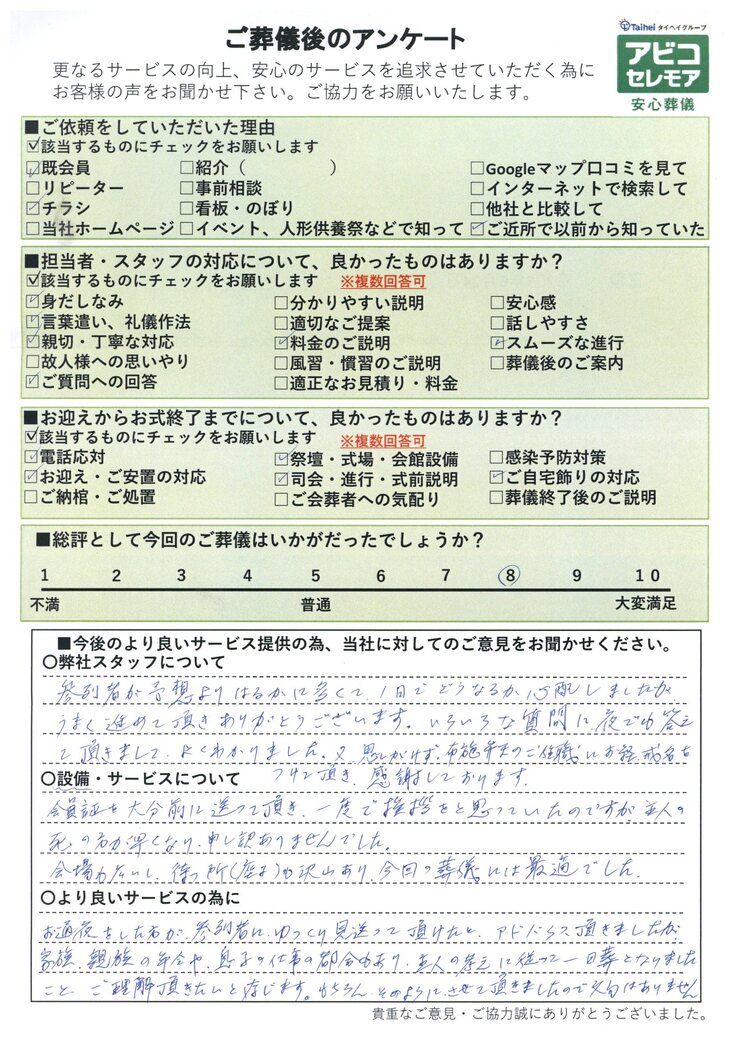 ご葬儀後のアンケート
Taihei タイヘイグループ
アビコ
セレモア
安心葬儀
更なるサービスの向上、安心のサービスを追求させていただく為に
お客様の声をお聞かせ下さい。ご協力をお願いいたします。
■ご依頼をしていただいた理由
☑該当するものにチェックをお願いします
☑既会員 □紹介（　　　　　） □Googleマップ口コミを見て
□リピーター □事前相談 □インターネットで検索して
☑チラシ □看板・のぼり □他社と比較して
□当社ホームページ □イベント、人形供養祭などで知って ☑ご近所で以前から知っていた
■担当者・スタッフの対応について、良かったものはありますか？
☑該当するものにチェックをお願いします ※複数回答可
☑身だしなみ □分かりやすい説明 □安心感
☑言葉遣い、礼儀作法 □適切なご提案 □話しやすさ
☑親切・丁寧な対応 ☑料金のご説明 ☑スムーズな進行
□故人様への思いやり □風習・慣習のご説明 □葬儀後のご案内
☑ご質問への回答 □適正なお見積り・料金
■お迎えからお式終了までについて、良かったものはありますか？
☑該当するものにチェックをお願いします ※複数回答可
☑電話応対 ☑祭壇・式場・会館設備 □感染予防対策
☑お迎え・ご安置の対応 ☑司会・進行・式前説明 ☑ご自宅飾りの対応
□ご納棺・ご処置 □ご会葬者への気配り □葬儀終了後のご説明
■総評として今回のご葬儀はいかがだったでしょうか？
1 2 3 4 5 6 7 8 9 10
不満 普通 大変満足
■今後のより良いサービス提供の為、当社に対してのご意見をお聞かせください。
○弊社スタッフについて
参列者が予想よりはるかに多くて、1日でどうなるか心配しましたが、
うまく進めて頂きありがとうございます。いろいろな質問に夜でも答え
て頂きまして、よくわかりました。又、思いがけず、のご住職にお経、戒名を
つけて頂き、感謝しております。
○設備・サービスについて
会員証を大分前に送って頂き、一度で挨拶をと思っていたのですが主人の
死の方が早くなり、申し訳ありませんでした。
会場も広いし、待つ所(座る)も沢山あり、今回の葬儀には最適でした。
○より良いサービスの為に
お通夜をした方が、参列者にゆっくり見送って頂けたと、アドバイス頂きましたが
家族、親族の年令や、息子の仕事の都合もあり、主人の考えに従って一日葬となりました
こと、ご理解頂きたいと存じます。もちろん、そのようにさせて頂きましたので文句はありません
貴重なご意見・ご協力誠にありがとうございました。